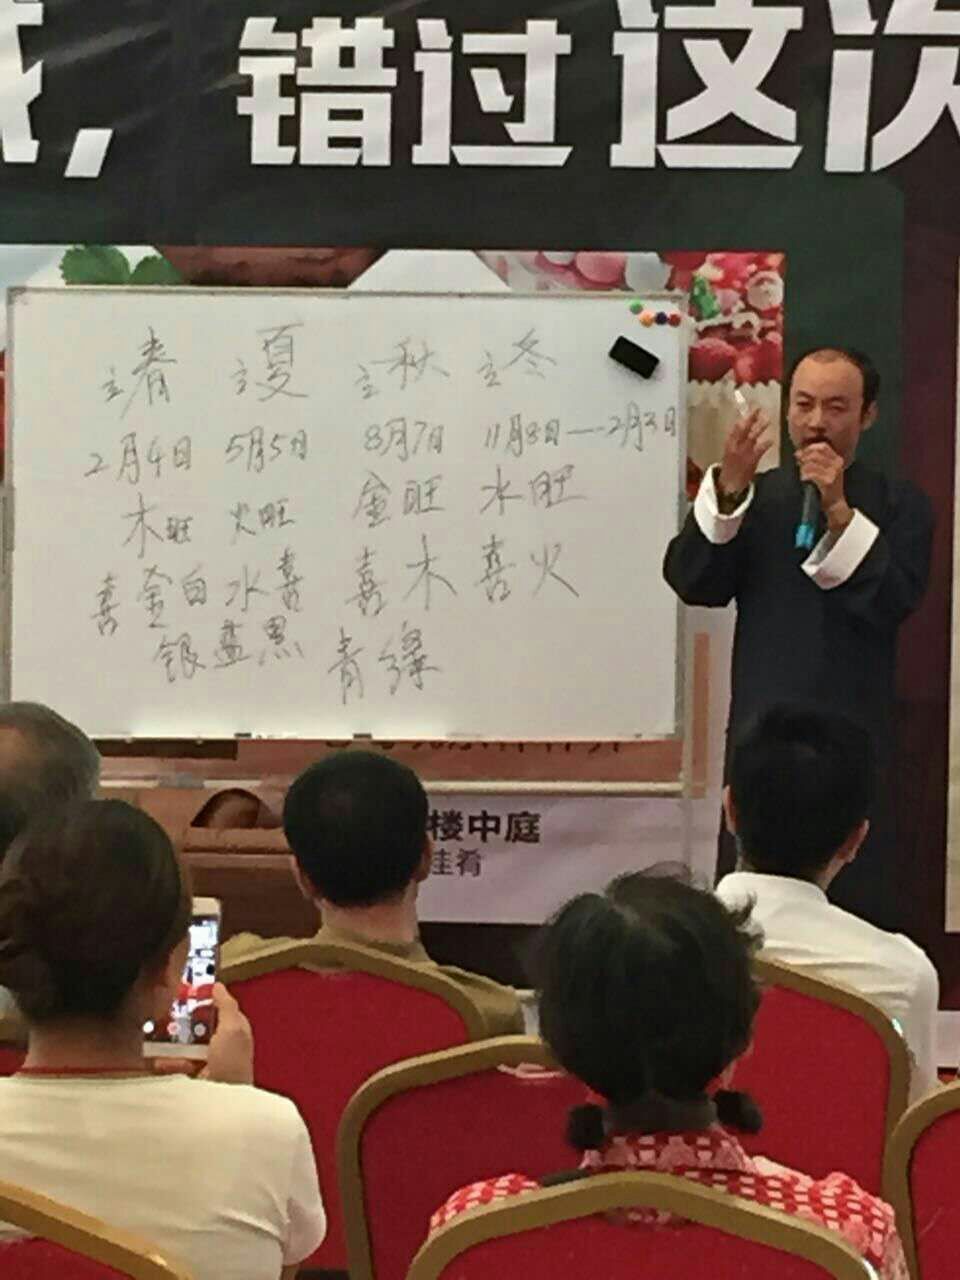 ，错过这次
立春 立夏 立秋 立冬
2月4日 5月5日 8月7日 11月8日—2月3日
木旺 火旺 金旺 水旺
喜金白 水喜 喜木 喜火
银蓝黑 青绿
楼中庭
佳肴